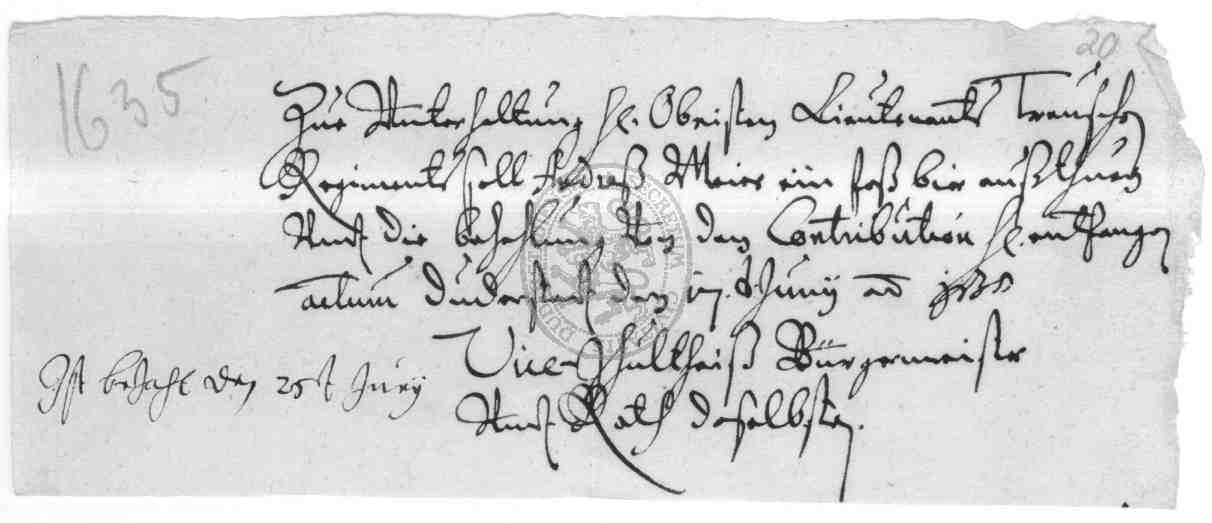 1635
20
Zue Unterhaltung H. Obristen Lieutenants Treuschen
Regiments soll Andreß Meier ein faß bier außthuen
Undt die bezahlung Von den Contribution H. entfangen
actum Duderstadt den Juny ao 1635
Vice Schultheiß Bürgermeister
Undt Rath daselbsten.
Ist bezahlt den 25t Juny